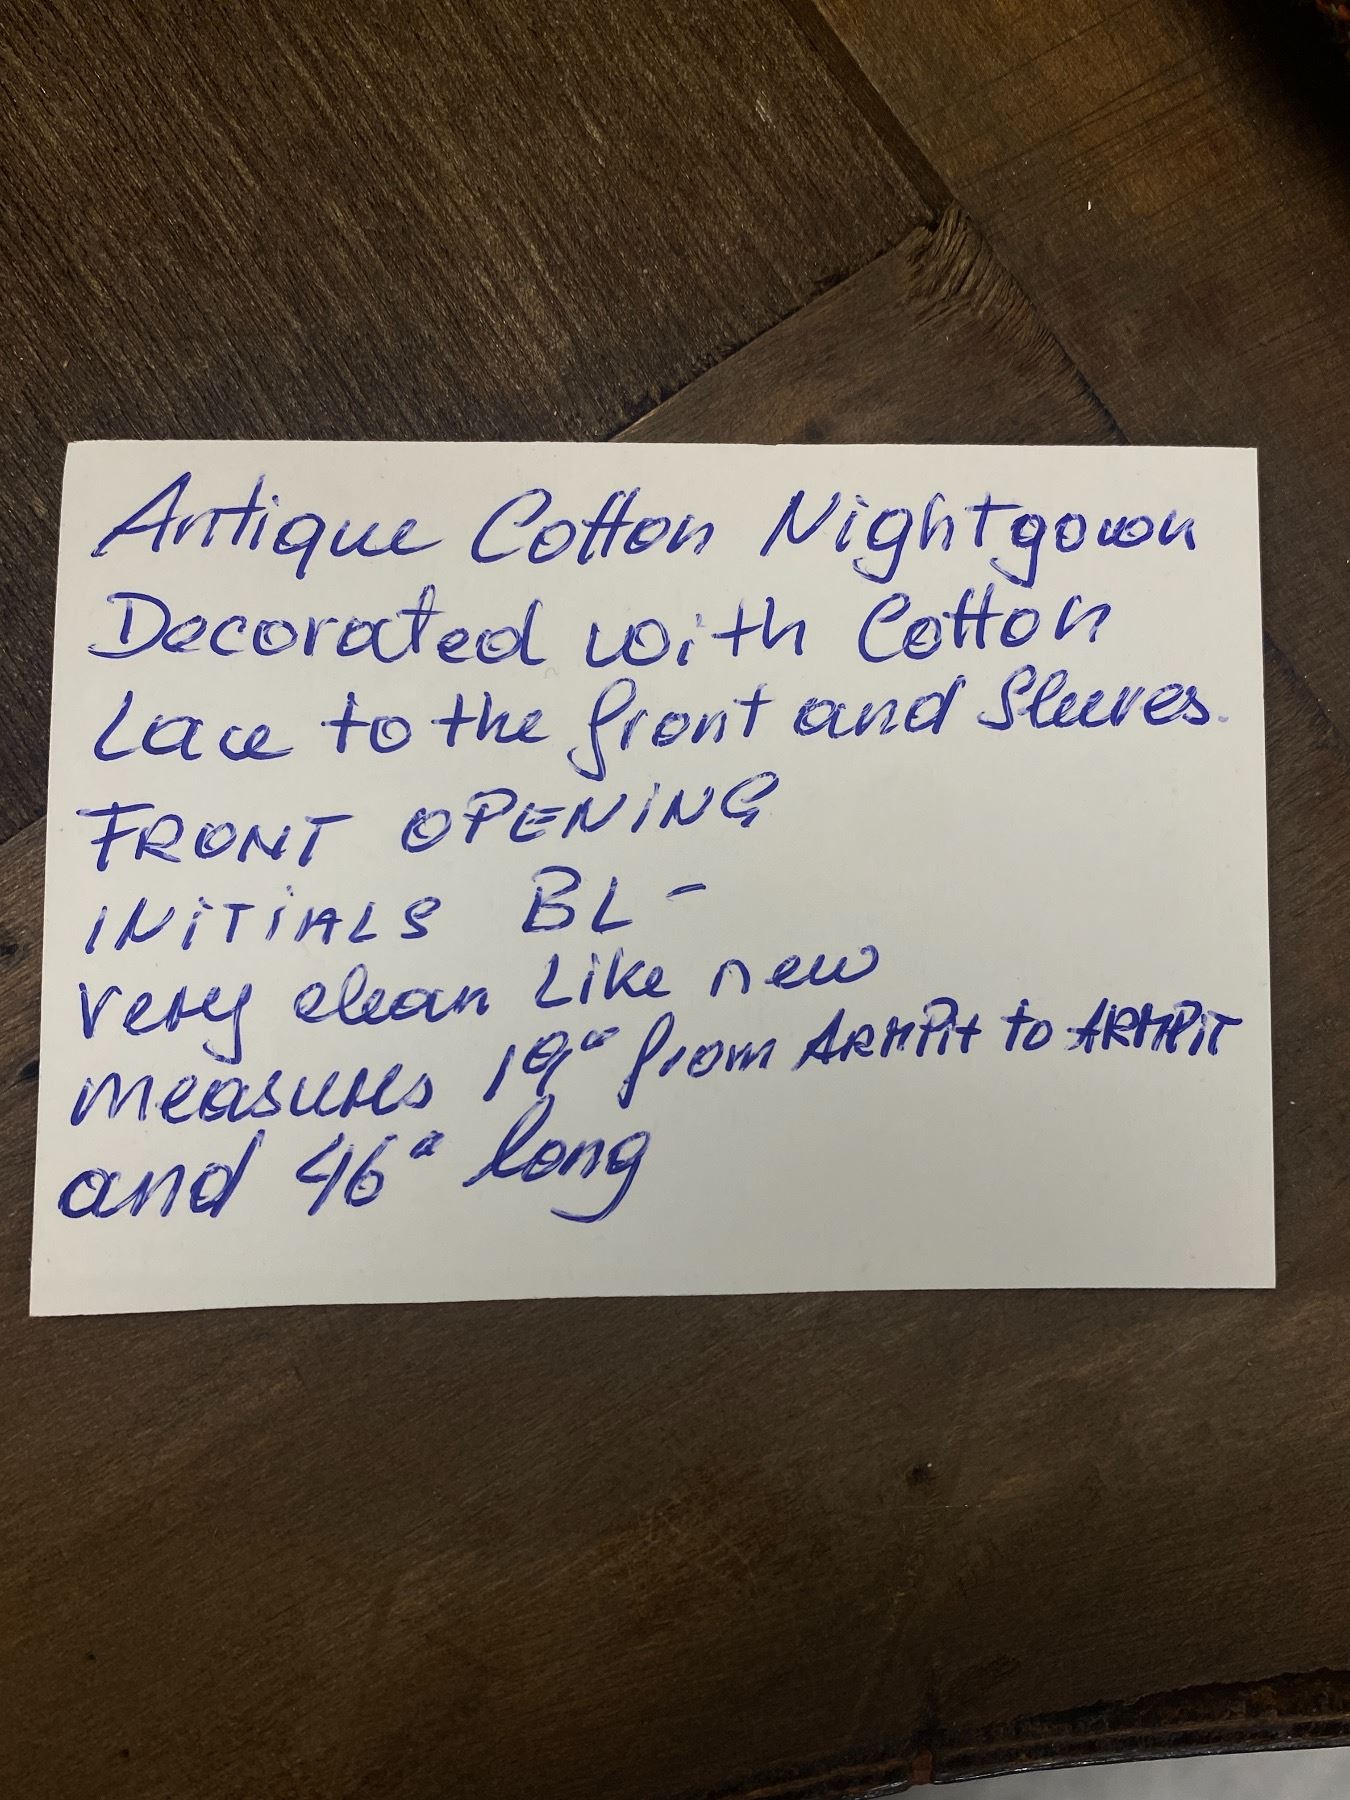 Antique Cotton Nightgown
Decorated with Cotton
Lace to the front and Sleeves.
FRONT OPENING
INITIALS BL -
very clean Like new
measures 19" from ARMPit to ARMPiT
and 46" long